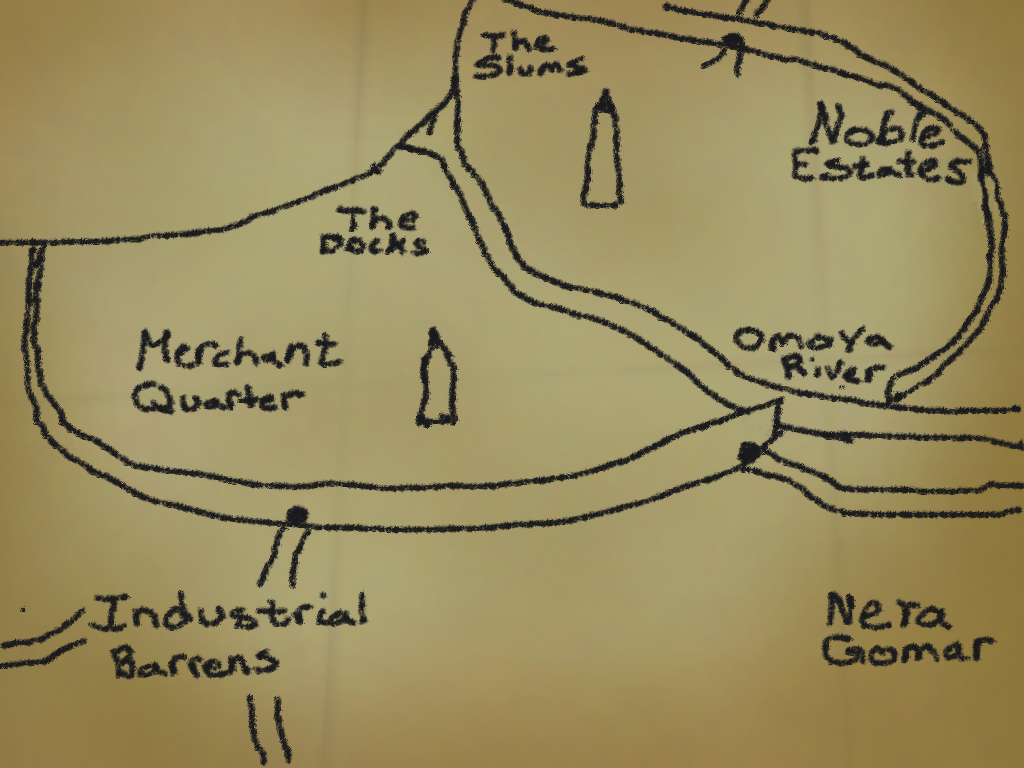 The
Slums
Noble
Estates
The
Docks
Merchant
Quarter
Omaya
River
Industrial
Barrens
Nera
Gomar